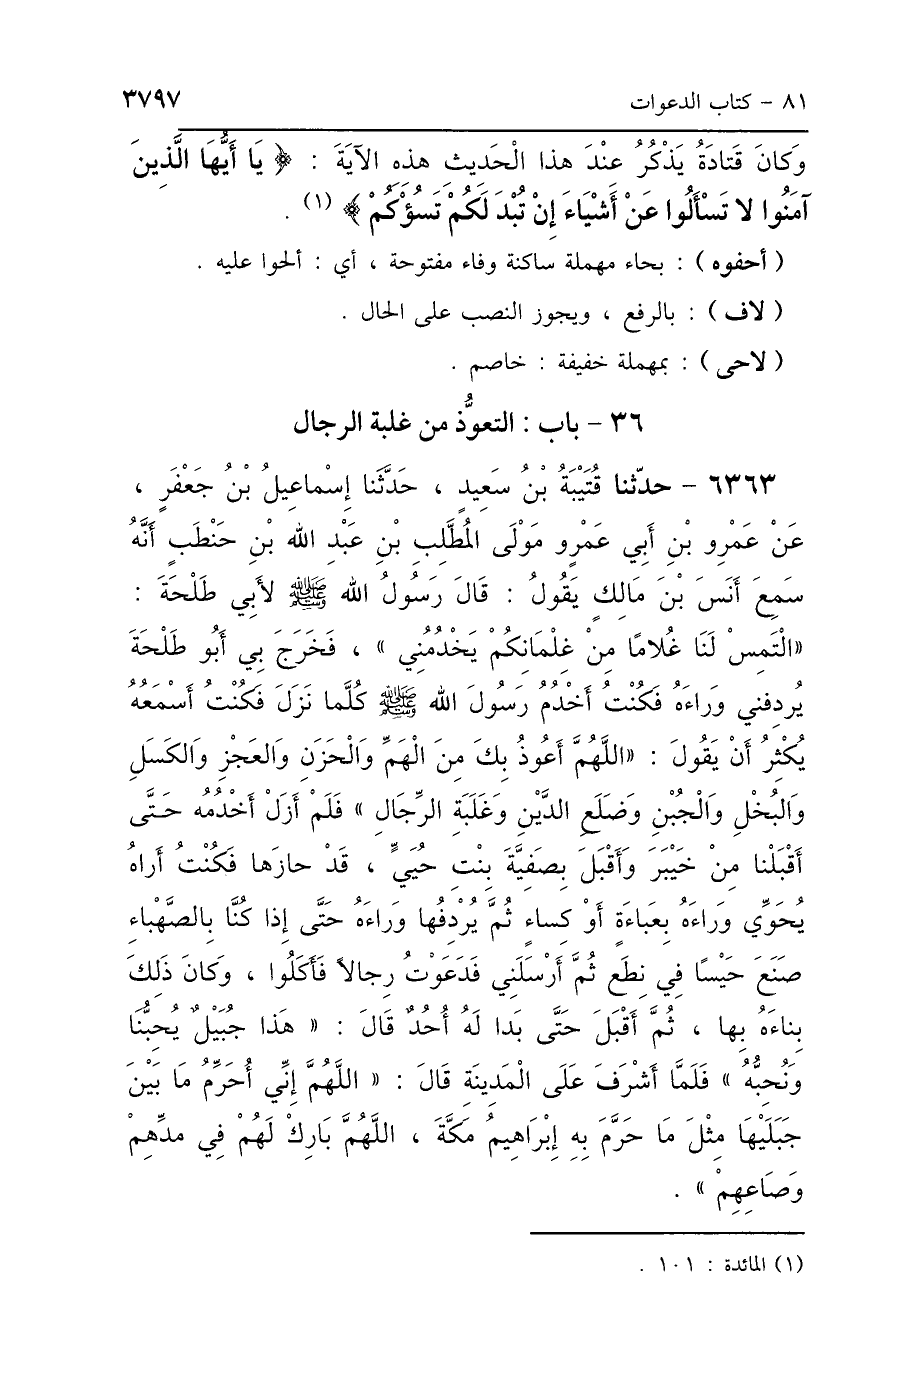 ٨١ - كتاب الدعوات ٣٧٩٧
وَكَانَ قَتَادَةُ يَذْكُرُ عِنْدَ هذا الْحَدِيث هذه الآيَةَ : ﴿ يَا أَيُّهَا الَّذِينَ
آمَنُوا لا تَسْأَلُوا عَنْ أَشْيَاءَ إِنْ تُبْدَ لَكُمْ تَسُؤْكُمْ ﴾ (١) .
( أحفوه ) : بحاء مهملة ساكنة وفاء مفتوحة ، أي : ألحوا عليه .
( لاف ) : بالرفع ، ويجوز النصب على الحال .
( لاحى ) : بمهملة خفيفة : خاصم .
٣٦ - باب : التعوُّذ من غلبة الرجال
٦٣٦٣ - حدّثنا قُتَيْبَةُ بْنُ سَعِيدٍ ، حَدَّثَنَا إِسْماعِيلُ بْنُ جَعْفَرٍ ،
عَنْ عَمْرِو بْنِ أَبِي عَمْرٍو مَوْلَى الْمُطَّلِبِ بْنِ عَبْدِ الله بْنِ حَنْطَبٍ أَنَّهُ
سَمِعَ أَنَسَ بْنَ مَالِكٍ يَقُولُ : قَالَ رَسُولُ الله ﷺ لأَبِي طَلْحَةَ :
«الْتَمِسْ لَنَا غُلامًا مِنْ غِلْمَانِكُمْ يَخْدُمُنِي » ، فَخَرَجَ بِي أَبُو طَلْحَةَ
يُرْدِفُنِي وَرَاءَهُ فَكُنْتُ أَخْدُمُ رَسُولَ الله ﷺ كُلَّما نَزَلَ فَكُنْتُ أَسْمَعُهُ
يُكْثِرُ أَنْ يَقُولَ : «اللَّهُمَّ أَعُوذُ بِكَ مِنَ الْهَمِّ وَالْحَزَنِ وَالعَجْزِ وَالكَسَلِ
وَالبُخْلِ وَالْجُبْنِ وَضَلَعِ الدَّيْنِ وَغَلَبَةِ الرِّجَالِ » فَلَمْ أَزَلْ أَخْدُمُه حَتَّى
أَقْبَلْنا مِنْ خَيْبَرَ وَأَقْبَلَ بِصَفِيَّةَ بِنْتِ حُيَيٍّ ، قَدْ حازَها فَكُنْتُ أَراهُ
يُحَوِّي وَراءَهُ بِعَباءَةٍ أَوْ كِساءٍ ثُمَّ يُرْدِفُها وَراءَهُ حَتَّى إِذا كُنَّا بِالصَّهْباءِ
صَنَعَ حَيْسًا فِي نِطَعٍ ثُمَّ أَرْسَلَنِي فَدَعَوْتُ رِجالاً فَأَكَلُوا ، وَكانَ ذَلِكَ
بِناءَهُ بِها ، ثُمَّ أَقْبَلَ حَتَّى بَدا لَهُ أُحُدٌ قَالَ : « هَذا جُبَيْلٌ يُحِبُّنا
وَنُحِبُّهُ » فَلَمَّا أَشْرَفَ عَلَى الْمَدِينَةِ قَالَ : « اللَّهُمَّ إِنِّي أُحَرِّمُ مَا بَيْنَ
جَبَلَيْهَا مِثْلَ مَا حَرَّمَ بِهِ إِبْرَاهِيمُ مَكَّةَ ، اللَّهُمَّ بَارِكْ لَهُمْ فِي مدِّهِمْ
وَصَاعِهِمْ » .
(١) المائدة : ١٠١ .